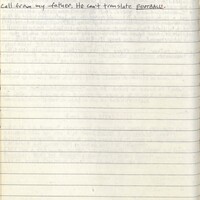 Call from my father. He can't translate